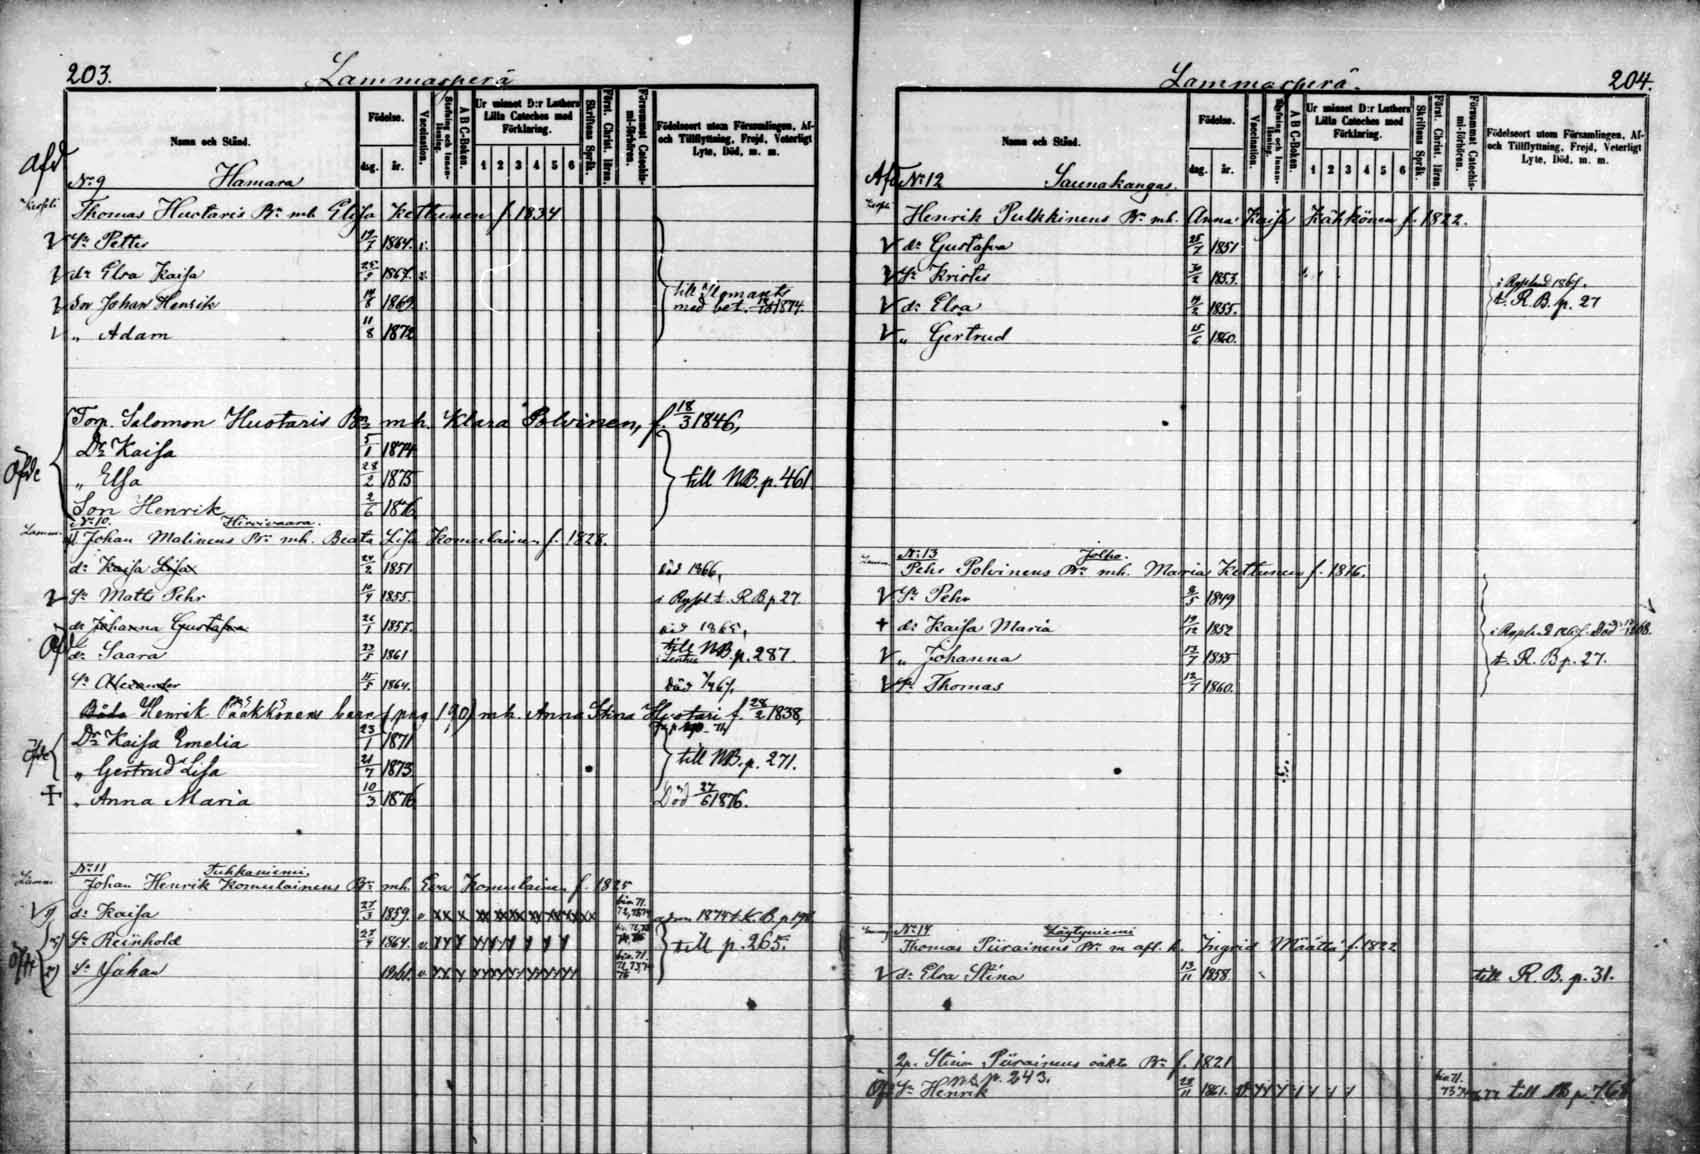 203.
Lammasperä
Namn och Stånd.
Födelse.
dag.
år.
Vaccination.
Stafning och Innan-läsning.
A B C-Boken.
Ur minnet D:r Luthers Lilla Cateches med Förklaring.
1 2 3 4 5 6
Skriftens Språk.
Först. Christ. läran.
Försummat Catechis-mi-förhören.
Födelseort utom Församlingen, Af- och Tillflyttning, Frejd, Veterligt Lyte, Död, m. m.
Afd
No 9 Hamara
Thomas Huotaris Bn mh. Elisa Kettunen f. 1834
Sn Petter 1864. v.
dr Elva Kaisa 1867. v.
Son Johan Henrik 1869.
till Ilomants
med bet. 1874.
„ Adam 11/8 1872
Torp. Salomon Huotaris Bn mh. Klara Polvinen, f. 18/3 1846,
Dr Kaisa 5/1 1874
„ Elsa 28/2 1875 till NB. p. 461
Son Henrik 2/6 1876
No 10. Hirvivaara.
Johan Malinens Bn mh. Beata Lisa Komulainen f. 1828.
dr Kaisa Lisa 1851 död 1866,
Sn Matts Pehr 1855. i Ryssl. t. R. B p 27.
dr Johanna Gustafva 1857. död 1865,
dr Saara 1861 till NB. p. 287.
Sn Alexander 1864. död
Henrik Pääkkönens barn f. pag 190 mh. Anna Stina Huotari f. 28/2 1838,
Dr Kaisa Emelia 23/1 1871
„ Gertrud Lisa 21/7 1873 till NB. p. 271.
„ Anna Maria 10/3 1876 Död 27/6 1876.
No 11 Tuhkaniemi.
Johan Henrik Komulainens Bn mh. Eva Komulainen f. 1825
dr Kaisa 27/3 1859.
Sn Reinhold 1864. v. till p. 265.
Sn Johan 1861. v.
204.
Lammasperä.
Namn och Stånd.
Födelse.
dag.
år.
Vaccination.
Stafning och Innan-läsning.
A B C-Boken.
Ur minnet D:r Luthers Lilla Cateches med Förklaring.
1 2 3 4 5 6
Skriftens Språk.
Först. Christ. läran.
Försummat Catechis-mi-förhören.
Födelseort utom Församlingen, Af- och Tillflyttning, Frejd, Veterligt Lyte, Död, m. m.
No 12 Saunakangas.
Henrik Pulkkinens Bn mh. Anna Kaisa Kähkönen f. 1822.
dr Gustafva 25/7 1851
Sn Krister 30/2 1853.
t. R. B. p. 27
dr Elva 1855.
„ Gertrud 15/6 1860.
No 13 Jolha.
Pehr Polvinens Bn mh. Maria Kettunen f. 1816.
Sn Pehr 1849
dr Kaisa Maria 1852
„ Johanna 1855 t. R. B p. 27.
Sn Thomas 1860.
No 14 Löytyniemi
Thomas Piirainens Bn m. afl. h. Ingrid Määttä f. 1822
dr Elva Stina 13/11 1858 till R. B. p. 31.
Stina Piirainens oäkta Bn f. 1821
NB p. 243.
Sn Henrik 1861.